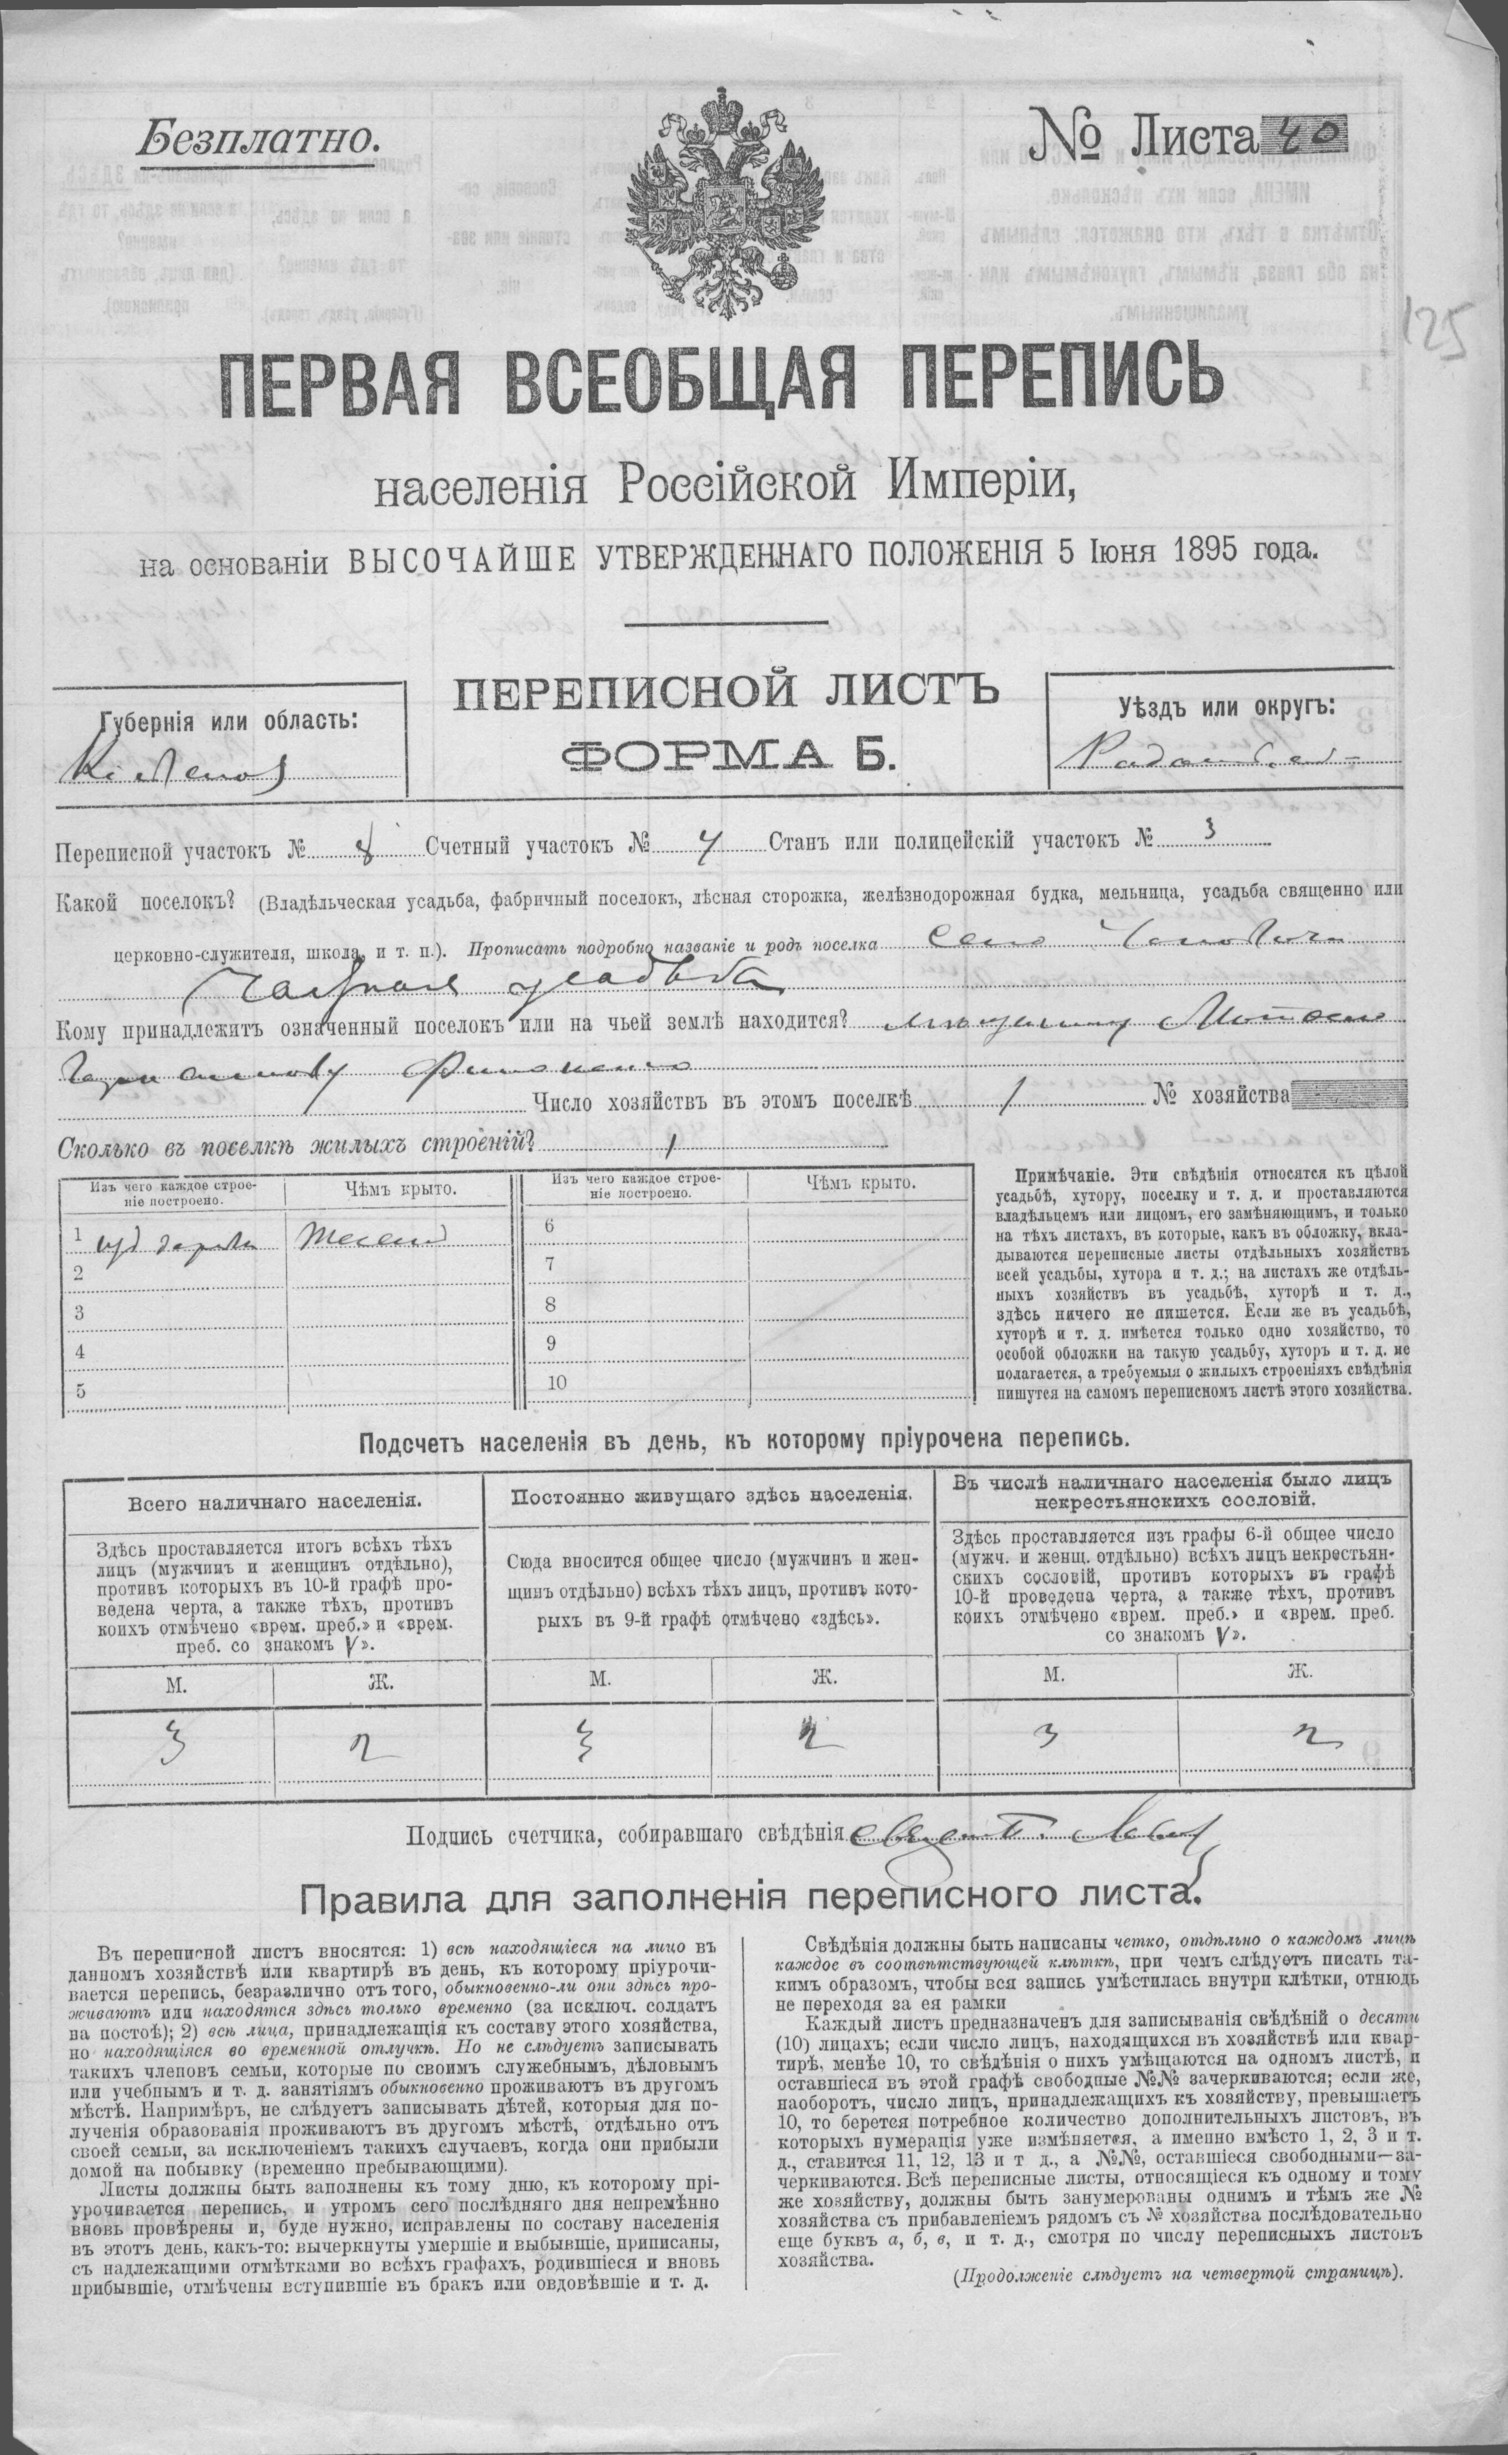 Безплатно.
№ Листа 40
125
ПЕРВАЯ ВСЕОБЩАЯ ПЕРЕПИСЬ
населенія Россійской Имперіи,
на основаніи ВЫСОЧАЙШЕ УТВЕРЖДЕННАГО ПОЛОЖЕНІЯ 5 Іюня 1895 года.
Губернія или область:
ПЕРЕПИСНОЙ ЛИСТЪ
ФОРМА Б.
Уѣздъ или округъ:
Переписной участокъ № 8 Счетный участокъ № 4 Станъ или полицейскій участокъ № 3
Какой поселокъ? (Владѣльческая усадьба, фабричный поселокъ, лѣсная сторожка, желѣзнодорожная будка, мельница, усадьба священно или
церковно-служителя, школа, и т. п.). Прописать подробно названіе и родъ поселка село
усадьба
Кому принадлежитъ означенный поселокъ или на чьей землѣ находится?
Число хозяйствъ въ этомъ поселкѣ 1 № хозяйства
Сколько въ поселкѣ жилыхъ строеній? 1
Изъ чего каждое строе-
ніе построено.
Чѣмъ крыто.
Изъ чего каждое строе-
ніе построено.
Чѣмъ крыто.
1 изъ дерева
2
3
4
5
6
7
8
9
10
Примѣчаніе. Эти свѣдѣнія относятся къ цѣлой
усадьбѣ, хутору, поселку и т. д. и проставляются
владѣльцемъ или лицомъ, его замѣняющимъ, и только
на тѣхъ листахъ, въ которые, какъ въ обложку, вкла-
дываются переписные листы отдѣльныхъ хозяйствъ
всей усадьбы, хутора и т. д.; на листахъ же отдѣль-
ныхъ хозяйствъ въ усадьбѣ, хуторѣ и т. д.,
здѣсь ничего не пишется. Если же въ усадьбѣ,
хуторѣ и т. д. имѣется только одно хозяйство, то
особой обложки на такую усадьбу, хуторъ и т. д. не
полагается, а требуемыя о жилыхъ строеніяхъ свѣдѣнія
пишутся на самомъ переписномъ листѣ этого хозяйства.
Подсчетъ населенія въ день, къ которому пріурочена перепись.
Всего наличнаго населенія.
Здѣсь проставляется итогъ всѣхъ тѣхъ
лицъ (мужчинъ и женщинъ отдѣльно),
противъ которыхъ въ 10-й графѣ про-
ведена черта, а также тѣхъ, противъ
коихъ отмѣчено «врем. преб.» и «врем.
преб. со знакомъ V».
М. Ж.
3 2
Постоянно живущаго здѣсь населенія.
Сюда вносится общее число (мужчинъ и жен-
щинъ отдѣльно) всѣхъ тѣхъ лицъ, противъ кото-
рыхъ въ 9-й графѣ отмѣчено «здѣсь».
М. Ж.
3 2
Въ числѣ наличнаго населенія было лицъ
некрестьянскихъ сословій.
Здѣсь проставляется изъ графы 6-й общее число
(мужч. и женщ. отдѣльно) всѣхъ лицъ некрестьян-
скихъ сословій, противъ которыхъ въ графѣ
10-й проведена черта, а также тѣхъ, противъ
коихъ отмѣчено «врем. преб.» и «врем. преб.
со знакомъ V».
М. Ж.
3 2
Подпись счетчика, собиравшаго свѣдѣнія
Правила для заполненія переписного листа.
Въ переписной листъ вносятся: 1) всѣ находящіеся на лицо въ
данномъ хозяйствѣ или квартирѣ въ день, къ которому пріурочи-
вается перепись, безразлично отъ того, обыкновенно-ли они здѣсь про-
живаютъ или находятся здѣсь только временно (за исключ. солдатъ
на постоѣ); 2) всѣ лица, принадлежащія къ составу этого хозяйства,
но находящіяся во временной отлучкѣ. Но не слѣдуетъ записывать
такихъ членовъ семьи, которые по своимъ служебнымъ, дѣловымъ
или учебнымъ и т. д. занятіямъ обыкновенно проживаютъ въ другомъ
мѣстѣ. Напримѣръ, не слѣдуетъ записывать дѣтей, которыя для по-
лученія образованія проживаютъ въ другомъ мѣстѣ, отдѣльно отъ
своей семьи, за исключеніемъ такихъ случаевъ, когда они прибыли
домой на побывку (временно пребывающими).
Листы должны быть заполнены къ тому дню, къ которому прі-
урочивается перепись, и утромъ сего послѣдняго дня непремѣнно
вновь провѣрены и, буде нужно, исправлены по составу населенія
въ этотъ день, какъ-то: вычеркнуты умершіе и выбывшіе, приписаны,
съ надлежащими отмѣтками во всѣхъ графахъ, родившіеся и вновь
прибывшіе, отмѣчены вступившіе въ бракъ или овдовѣвшіе и т. д.
Свѣдѣнія должны быть написаны четко, отдѣльно о каждомъ лицѣ
каждое въ соотвѣтствующей клѣткѣ, при чемъ слѣдуетъ писать та-
кимъ образомъ, чтобы вся запись умѣстилась внутри клѣтки, отнюдь
не переходя за ея рамки
Каждый листъ предназначенъ для записыванія свѣдѣній о десяти
(10) лицахъ; если число лицъ, находящихся въ хозяйствѣ или квар-
тирѣ, менѣе 10, то свѣдѣнія о нихъ умѣщаются на одномъ листѣ, и
оставшіеся въ этой графѣ свободные №№ зачеркиваются; если же,
наоборотъ, число лицъ, принадлежащихъ къ хозяйству, превышаетъ
10, то берется потребное количество дополнительныхъ листовъ, въ
которыхъ нумерація уже измѣняется, а именно вмѣсто 1, 2, 3 и т.
д., ставится 11, 12, 13 и т д., а №№, оставшіеся свободными—за-
черкиваются. Всѣ переписные листы, относящіеся къ одному и тому
же хозяйству, должны быть занумерованы однимъ и тѣмъ же №
хозяйства съ прибавленіемъ рядомъ съ № хозяйства послѣдовательно
еще буквъ а, б, в, и т. д., смотря по числу переписныхъ листовъ
хозяйства.
(Продолженіе слѣдуетъ на четвертой страницѣ).